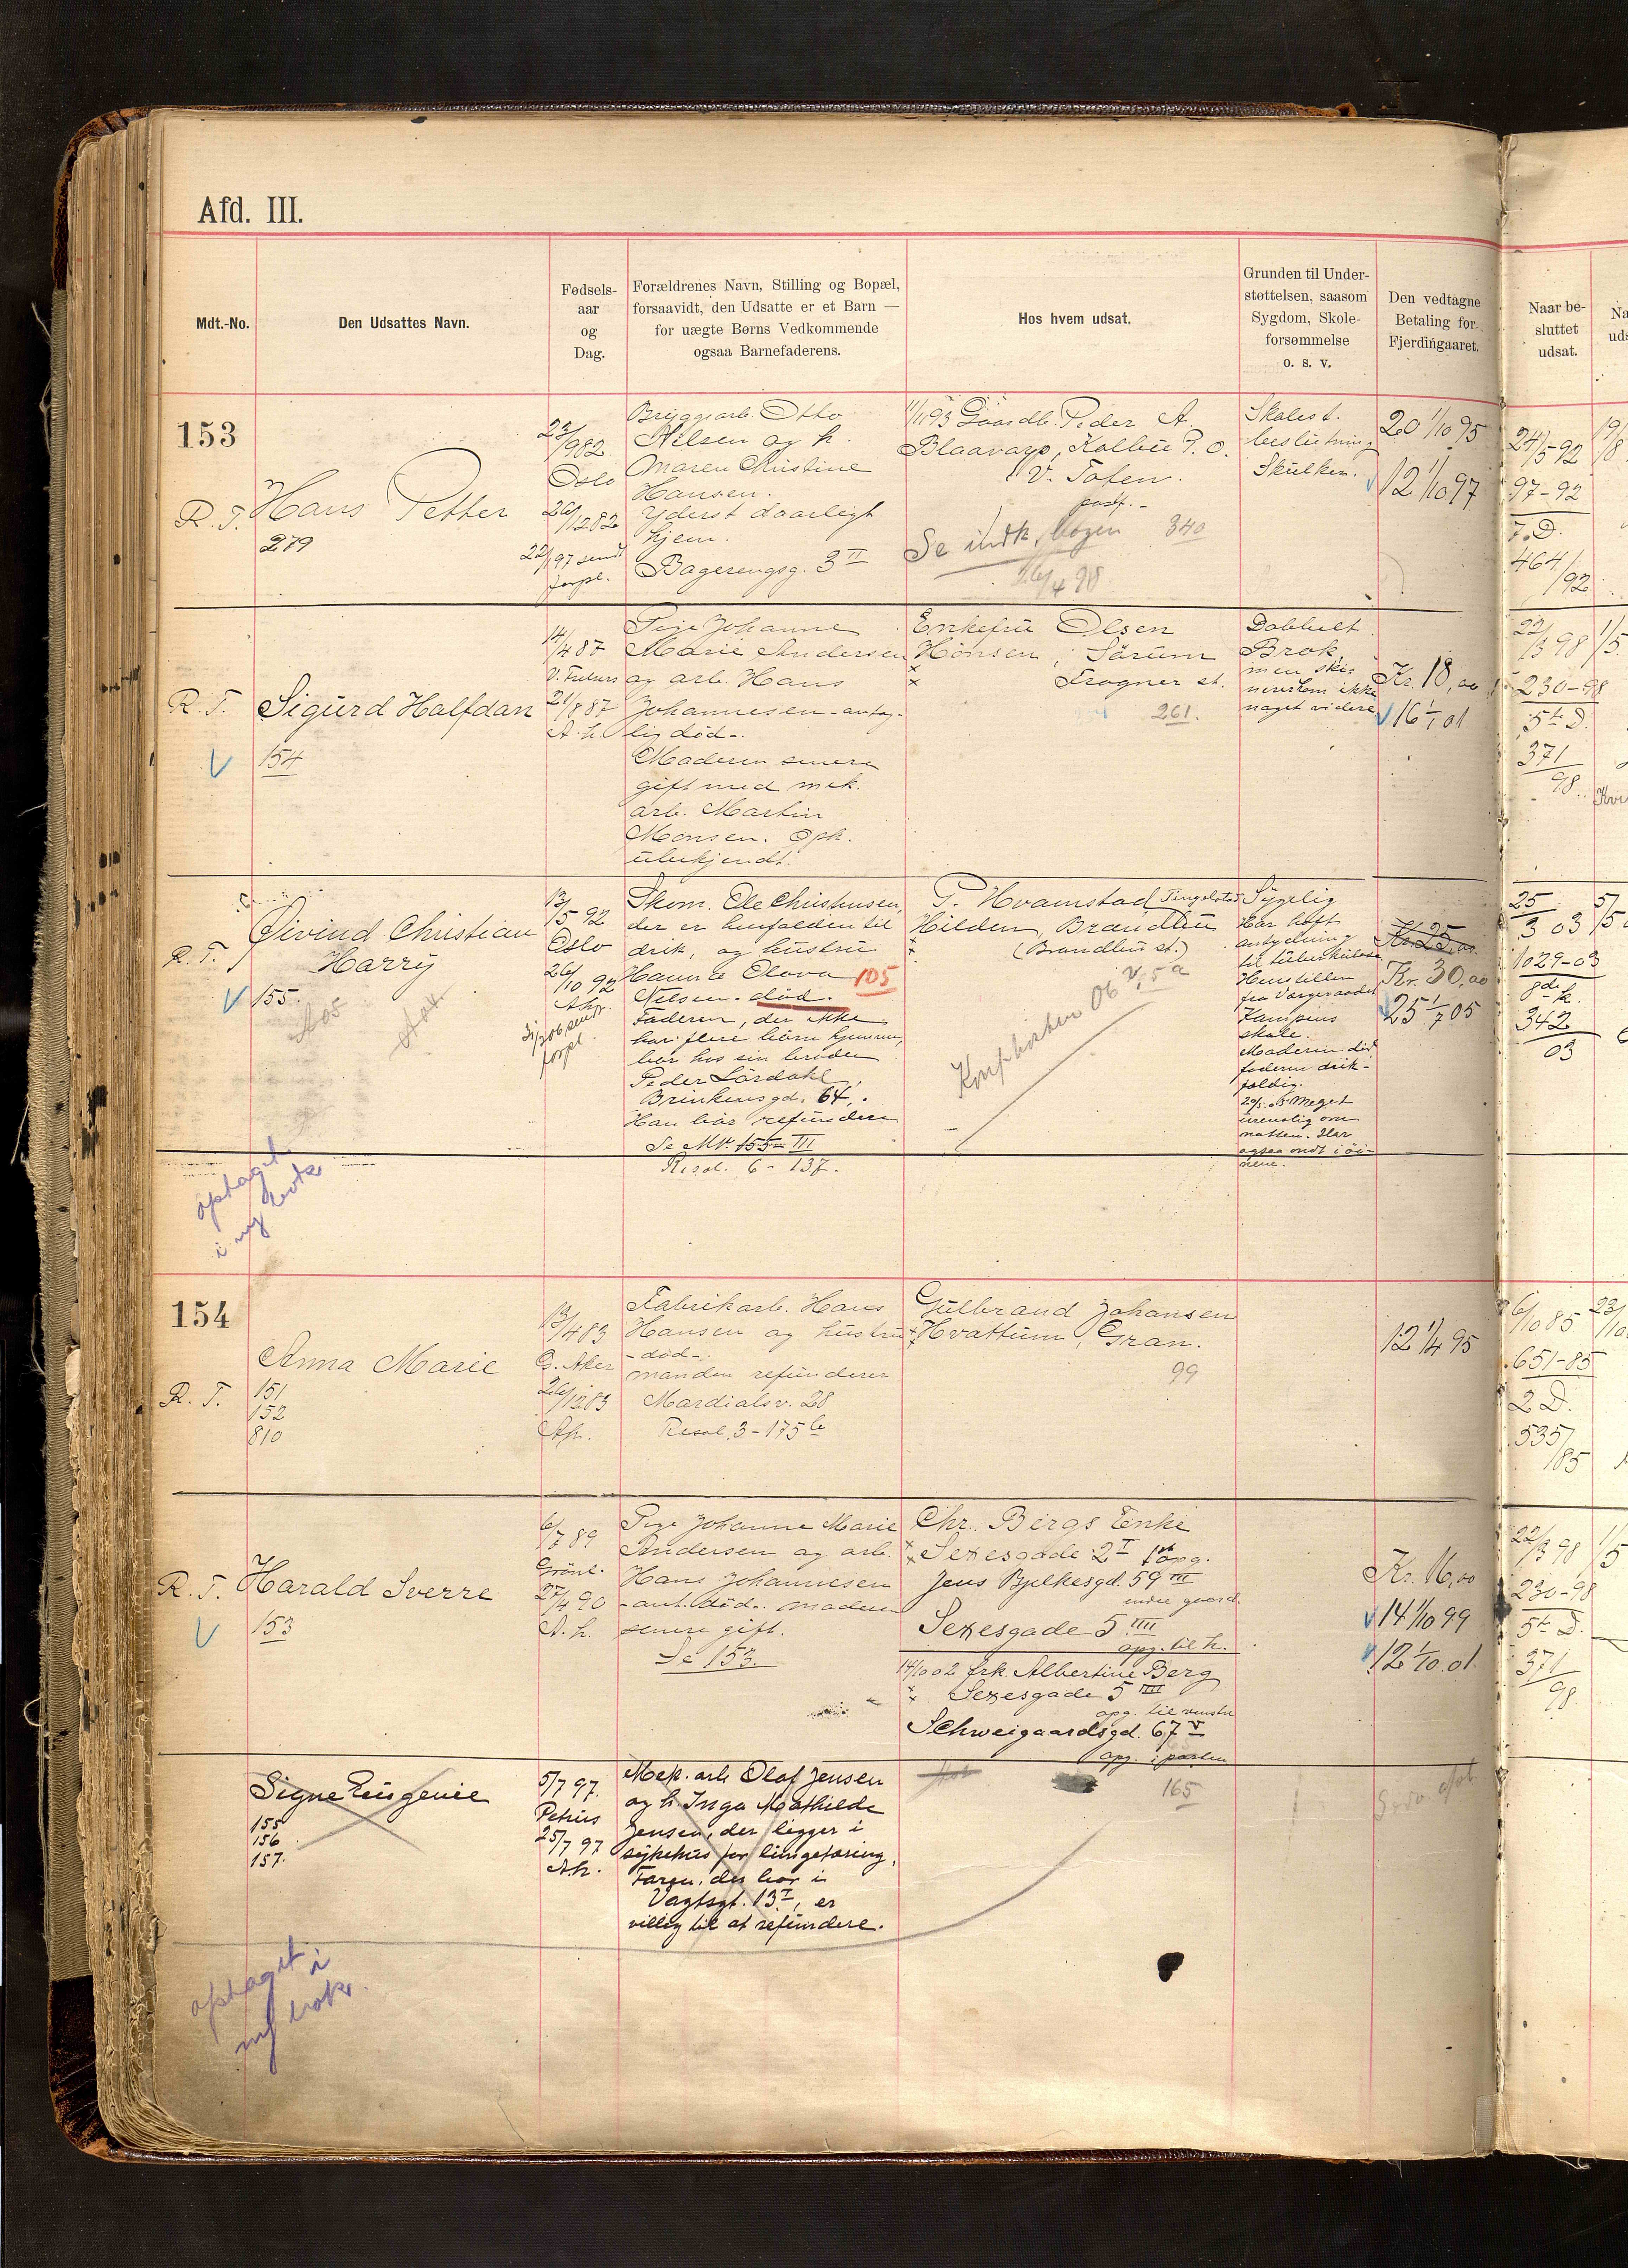 Afd. III.
Mdt.-No.
Den Udsattes Navn.
Fødsels-
aar
og
Dag.
Forældrenes Navn, Stilling og Bopæl,
forsaavidt, den Udsatte er et Barn —
for uægte Børns Vedkommende
ogsaa Barnefaderens.
Hos hvem udsat.
Grunden til Under-
støttelsen, saasom
Sygdom, Skole-
forsømmelse
o. s. v.
Den vedtagne
Betaling for
Fjerdingaaret.
Naar be-
sluttet
udsat.
153
R. T.
Hans Petter
279
22/9 82
Oslo
26/12 82
22/1 97 sendt
forpl.
Bryggearb. Otto
Nilsen og h.
Maren Kristine
Hansen.
Yderst daarligt
hjem.
Bagerengsg. 3 II
1/1 93 Gaardb. Peder A.
Blaavarp, Kolbu P. O.
V. Toten.
Se indk. bogen 340
26/4 98
Skolest.
Skulken.
20 1/10 95
12 1/10 97
24/5-92
97-92
7. D.
464/92
R. T.
Sigurd Halfdan
154
14/4 87
21/8 87
A. k.
Pige Johanne
Marie Andersen
og arb. Hans
Johannesen - antag-
lig død -.
Moderen senere
gift med mek.
arb. Martin
Monsen. Oph.
ubekjendt.
Enkefru Olsen
Hønsen, Sørum
Frogner st.
261.
Dobbelt
Brok,
men ske-
ikke
noget videre
Kr. 18,00
16 1/1 01
22/3 98
230-98
5te D.
371/98
R. T.
Øivind Christian
Harry
155.
13/5 92
Oslo
26/10 92
Skom. Ole Christensen,
der er henfalden til
drik, og hustru
Hanna Olava 105
Nielsen - død.
Faderen, der ikke
har flere børn hjemme,
bor hos sin broder
Peder Lørdahl,
Brinkensgd. 64.
Han bør refundere
Se Mtr. 155 III
Resol. 6 - 137.
P. Hvamstad Tingelstad
Hilden, Brandbu
(Brandbu st.)
Sygelig
Har havt
antydning
til tuberkulose
Henstillen
fra Vergeraadet
Kampens
skole.
Moderen død
faderen drik-
fældig.
29/5.05 Meget
urenslig om
natten. Har
ogsaa ondt i øi-
nene.
Kr. 30,00
25 1/7 05
25/3 03
1029-03
8de k.
342/03
optaget
i ny bok
154
R. T.
Anna Marie
151
152
810
13/4 83
G. Aker
26/12 83
Ak.
Fabrikarb. Hans
Hansen og hustru
- død -.
manden refunderer
Maridalsv. 28
Resol. 3 - 175 b
Gulbrand Johansen
Hvattum, Gran.
99
12 1/4 95
6/10 85
651-85
2 D.
535/85
R. T.
Harald Sverre
153
6/7 89
Grønl.
27/4 90
A. k.
Pige Johanne Marie
Andersen og arb.
Hans Johannesen
- ant. død -. Moderen
senere gift.
Se 153.
Chr. Bergs Enke
Sexesgade 2 I 1 opg.
Jens Bjelkesgd. 59 III
indre gaard.
Sexesgade 5 IIII
opg. til h.
14/10 02 frk. Albertine Berg
Sexesgade 5 IIII
opg. til venstre
Schweigaardsgd. 67 V
opg. i porten
Kr. 16,00
14 1/10 99
12 1/10. 01
22/3 98
230-98
5te D.
371/98
Signe Eugenie
155
156
157.
5/7 97.
Petrus
25/7 97
A. k.
Mek. arb Olaf Jensen
og h. Inga Mathilde
Jensen, der ligger i
sykehus for lungetæring.
Faren, der bor i
Vagtsgt. 13 I, er
villig til at refundere.
165
optaget i
ny bok.